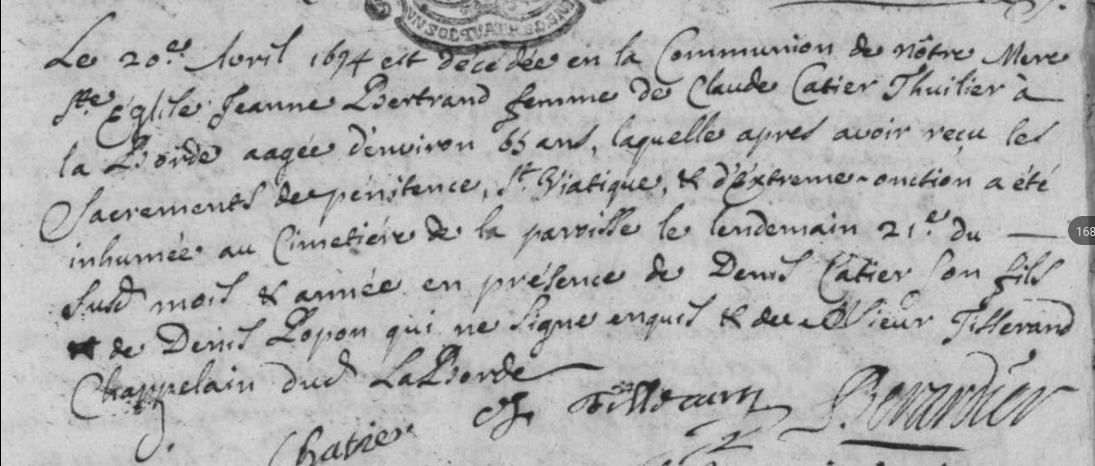 UN SOL QUATRE DEN
Le 20.e Avril 1694 est decedée en la Communion de nôtre Mere
ste Eglise Jeanne Bertrand femme de Claude Catier Thuilier à
la Borde aagée d'environ 65 ans, laquelle apres avoir reçu les
Sacrements de penitence, St Viatique, & d'Extreme-onction a été
inhumée au Cimetiére de la paroisse le lendemain 21.e du
susd mois & année en présence de Denis Catier son fils
& de Denis Lopon qui ne signe enquis & de Sieur Tisserand
Chappelain dud LaBorde
Chatier Tisserand Berardier
168